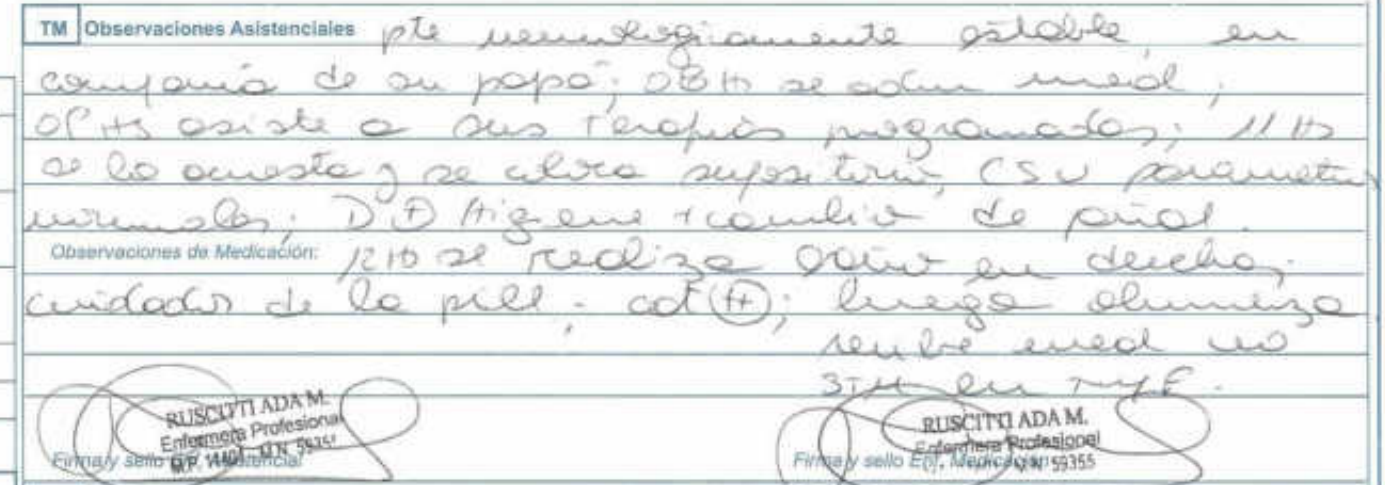 TM Observaciones Asistenciales pte neurologicamente estable, en
compania de su papá; 08 Hs se adm med;
09 Hs asiste a sus terapias programadas; 11 Hs
se lo acuesta y se coloca supositorio, CSV parametros
normales; D ⊕ Higiene + cambio de pañal.
Observaciones de Medicación: 12 Hs se realiza baño en ducha;
cuidados de la piel; cat (++); luego almuerza
recibe med
en
RUSCITTI ADA M.
Enfermera Profesional
Firma y sello
RUSCITTI ADA M.
Enfermera Profesional
Firma y sello Enf. Medicación 59355